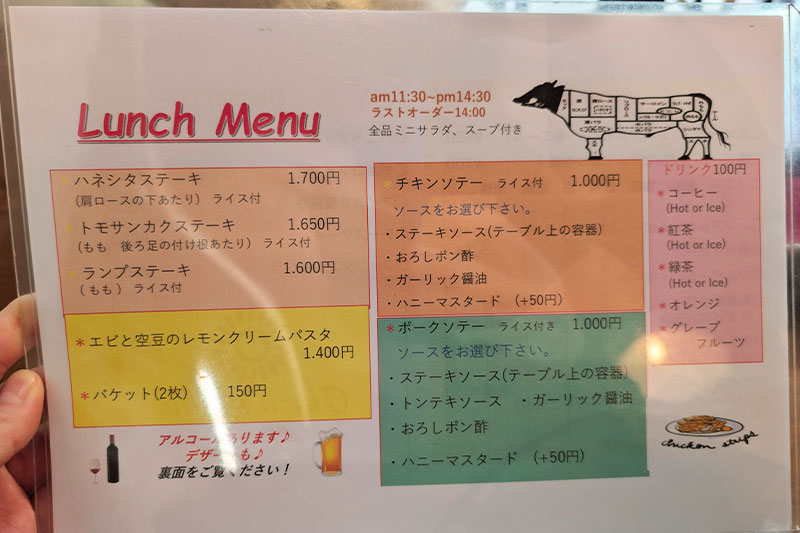 Lunch Menu
am11:30~pm14:30
ラストオーダー14:00
全品ミニサラダ、スープ付き
*ハネシタステーキ 1.700円
(肩ロースの下あたり) ライス付
*トモサンカクステーキ 1.650円
(もも 後ろ足の付け根あたり) ライス付
*ランプステーキ 1.600円
(もも) ライス付
*エビと空豆のレモンクリームパスタ
1.400円
*バケット(2枚) 150円
アルコールあります♪
デザートも♪
裏面をご覧ください!
*チキンソテー ライス付 1.000円
ソースをお選び下さい。
・ステーキソース(テーブル上の容器)
・おろしポン酢
・ガーリック醤油
・ハニーマスタード (+50円)
*ポークソテー ライス付き 1.000円
ソースをお選び下さい。
・ステーキソース(テーブル上の容器)
・トンテキソース ・ガーリック醤油
・おろしポン酢
・ハニーマスタード (+50円)
ドリンク100円
*コーヒー
(Hot or Ice)
*紅茶
(Hot or Ice)
*緑茶
(Hot or Ice)
*オレンジ
*グレープ
フルーツ
chicken strips